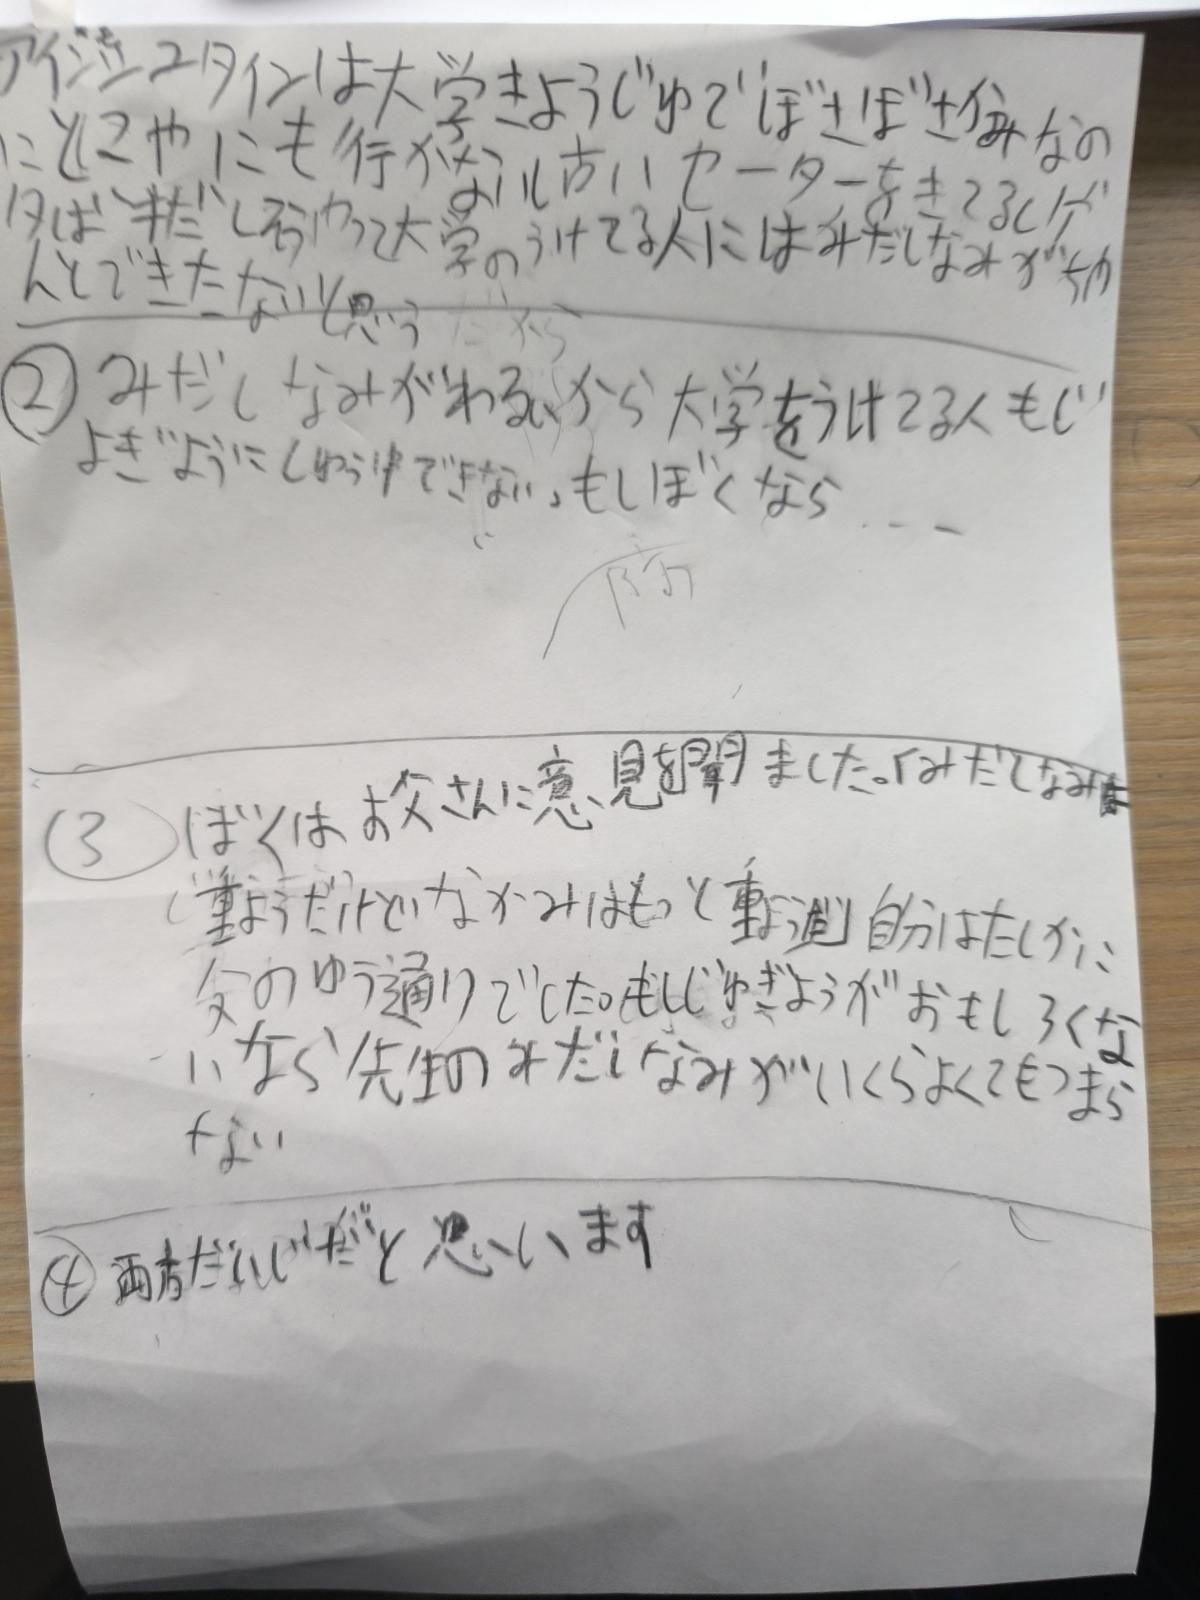 アインシュタインは大学きょうじゅでぼさぼさがみなの
にとこやにも行かない古いセーターをきてるしゲ
タばきだしそうやって大学のうけてる人にはみだしなみがちゃ
んとできたないと思う
② みだしなみがわるいから大学をうけてる人もじ
よぎように できない。もしぼくなら...
③ ぼくはお父さんに意見を聞ました。「みだしなみは
重ようだけどいなかみはもっと重よう 自分はたしかに
父のゆう通りでした。もしじゅぎようがおもしろくな
いなら先生のみだしなみがいくらよくてもつまら
ない
④ 両方だいじだと思いいます